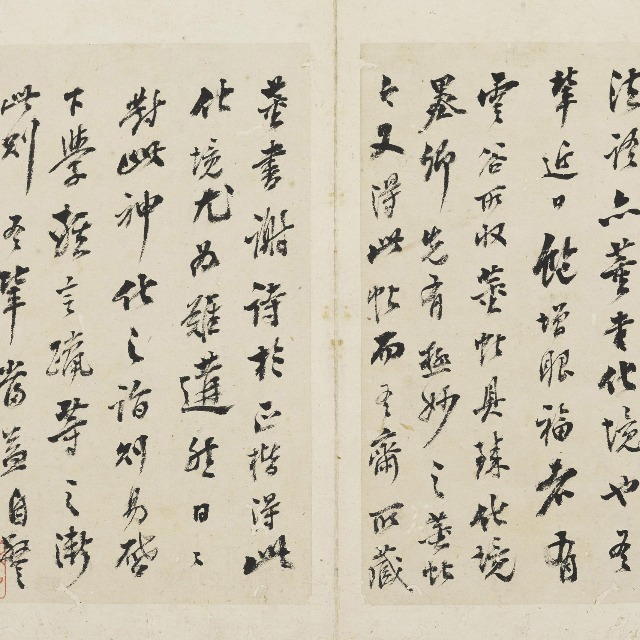 法語亦董書化境也吾
輩近日能增眼福者有
雲谷所收董帖具臻化境
墨卿先有極妙之董帖
今又得此帖而吾齋所藏
董書謝詩於正楷得此
化境尤為難遘然日日
對此神化之詣何易啟
下學雖言疏等之漸
此則吾輩當益自警